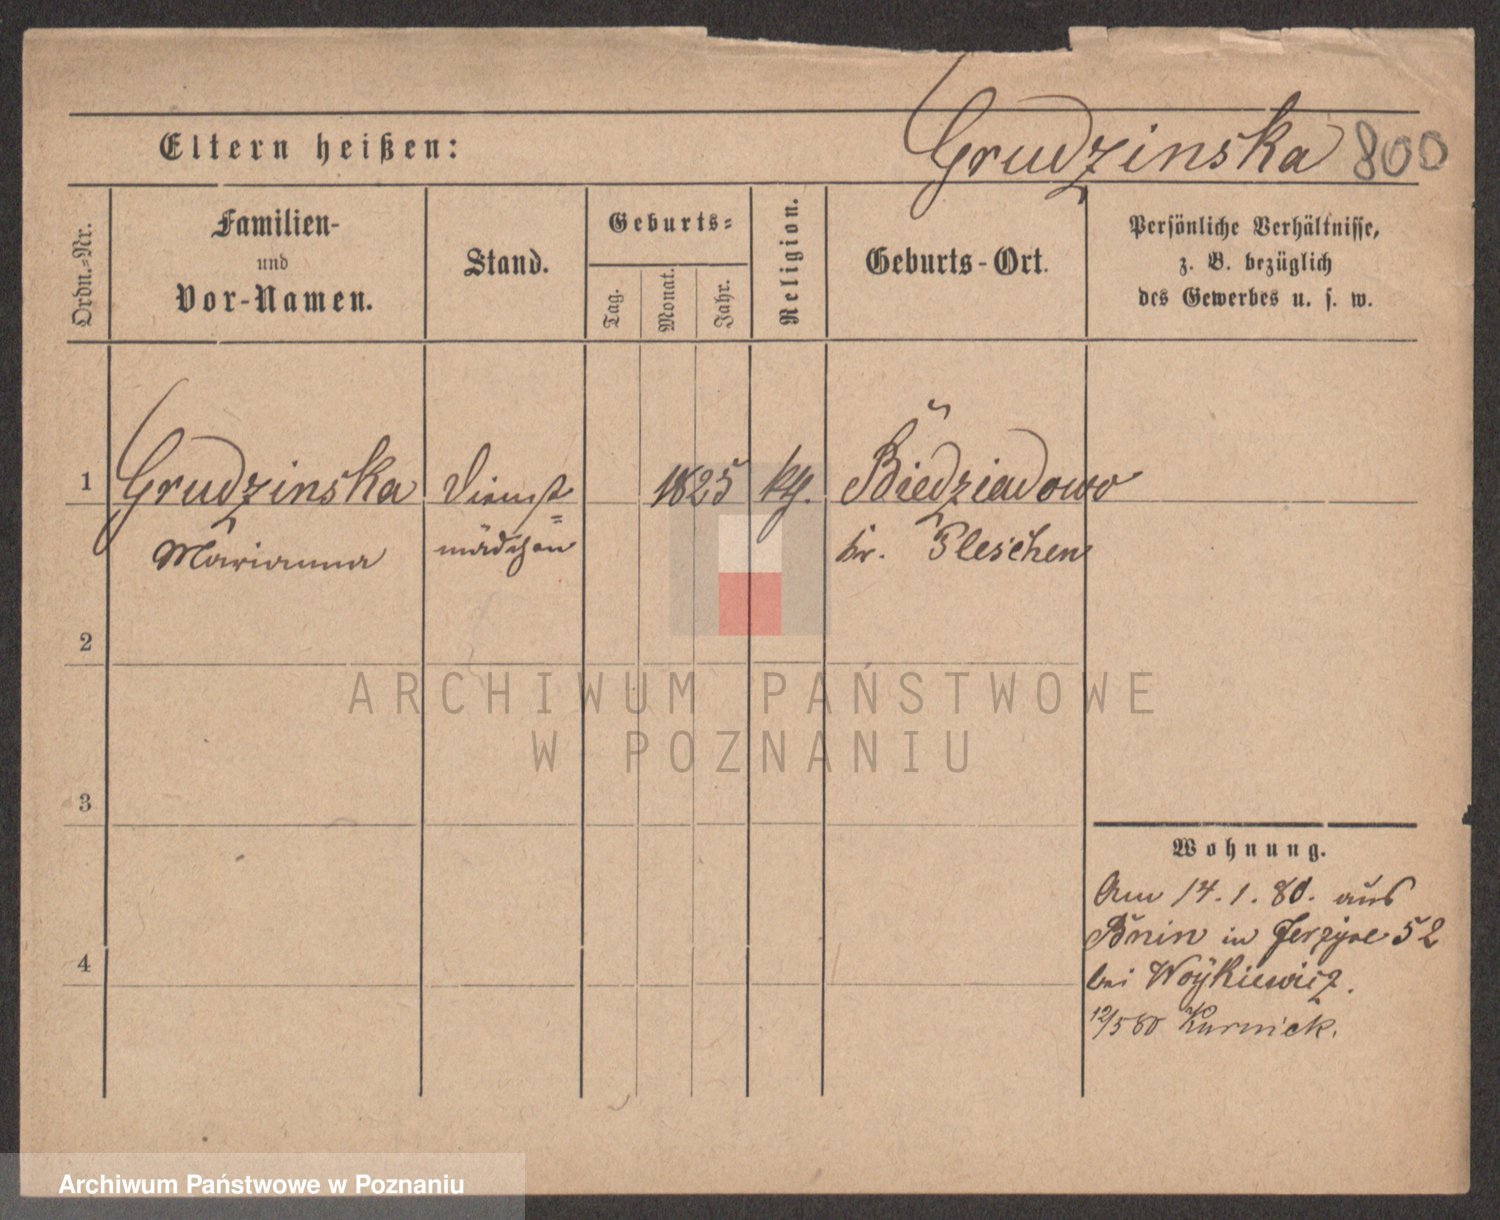 Grudzinska 800
Eltern heißen:
Ordn.-Nr.
Familien-
und
Vor-Namen.
Stand.
Geburts-
Tag.
Monat.
Jahr.
Religion.
Geburts-Ort.
Persönliche Verhältnisse,
z. B. bezüglich
des Gewerbes u. s. w.
1 Grudzinska Dienst= 1825 kth. Biedziadowo
Marianna mädchen kr. Pleschen
2
3
4
Wohnung.
Am 14.1.80. aus
Bnin in Jerzyce 52
bei Woÿkiewicz.
12/5 80 Kurnick.
ARCHIWUM PAŃSTWOWE
W POZNANIU
Archiwum Państwowe w Poznaniu